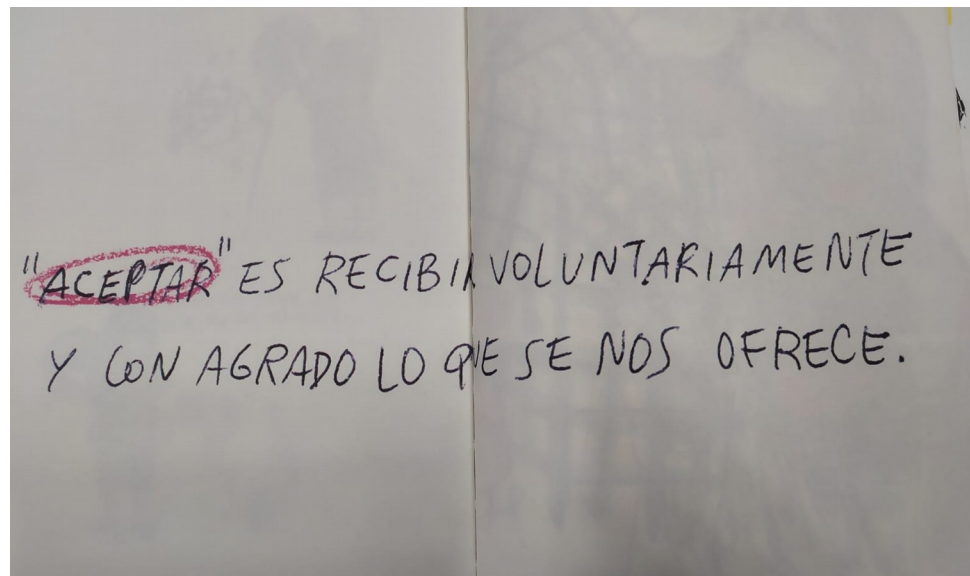 "ACEPTAR" ES RECIBIR VOLUNTARIAMENTE
Y CON AGRADO LO QUE SE NOS OFRECE.